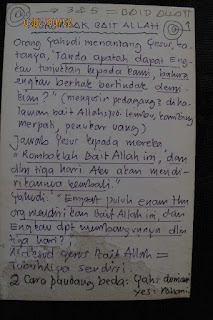 ROMBAK BAIT ALLAH
Orang Yahudi menantang Yesus, ka-
tanya, Tanda apakah dapat Eng-
kau tunjukkan kepada kami, bahwa
engkau berhak bertindak demi
kian?" (mengusir pedagang2 di ha-
laman bait Allah: lembu, kambing
merpati, penukar uang)
Jawab Yesus kepada mereka
"Rombaklah Bait Allah ini, dan
dlm tiga hari Aku akan mendi-
rikannya kembali."
Yahudi: "Empat puluh enam thn
org mendirikan Bait Allah ini, dan
Engkau dpt membangunnya dlm
tiga hari?"
Bait Allah =
Tubuh-Nya sendiri
2 Cara pandang beda: Yah:
Yes: Rohani